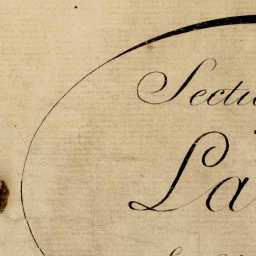 Secti
La